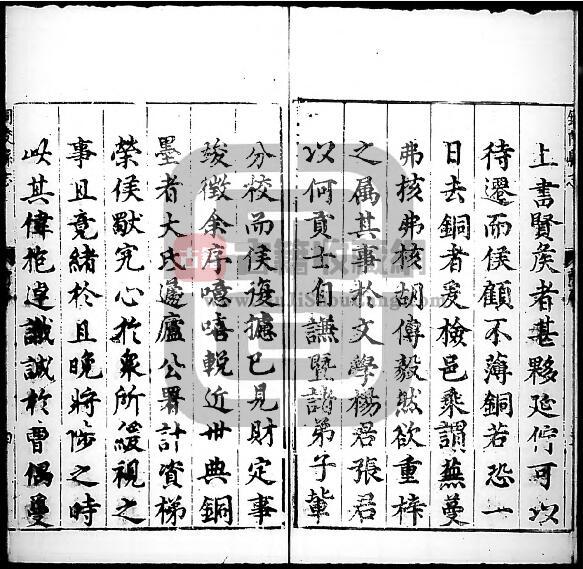 上書賢侯者甚夥延佇可以
待遷而侯顧不薄銅若恐一
日去銅者爰檢邑乘謂蕪蔓
弗核弗核胡傳毅然欲重梓
之屬其事於文學楊君張君
以何貢士自謙暨諸弟子輩
分校而侯復攄已見財定事
竣徵余序噫嘻輓近世典銅
墨者大氐蘧廬公署計資梯
榮侯獨究心於衆所緩視之
事且竟緒於且晚將陟之時
此其偉抱達識誠於曹偶
古籍收藏網